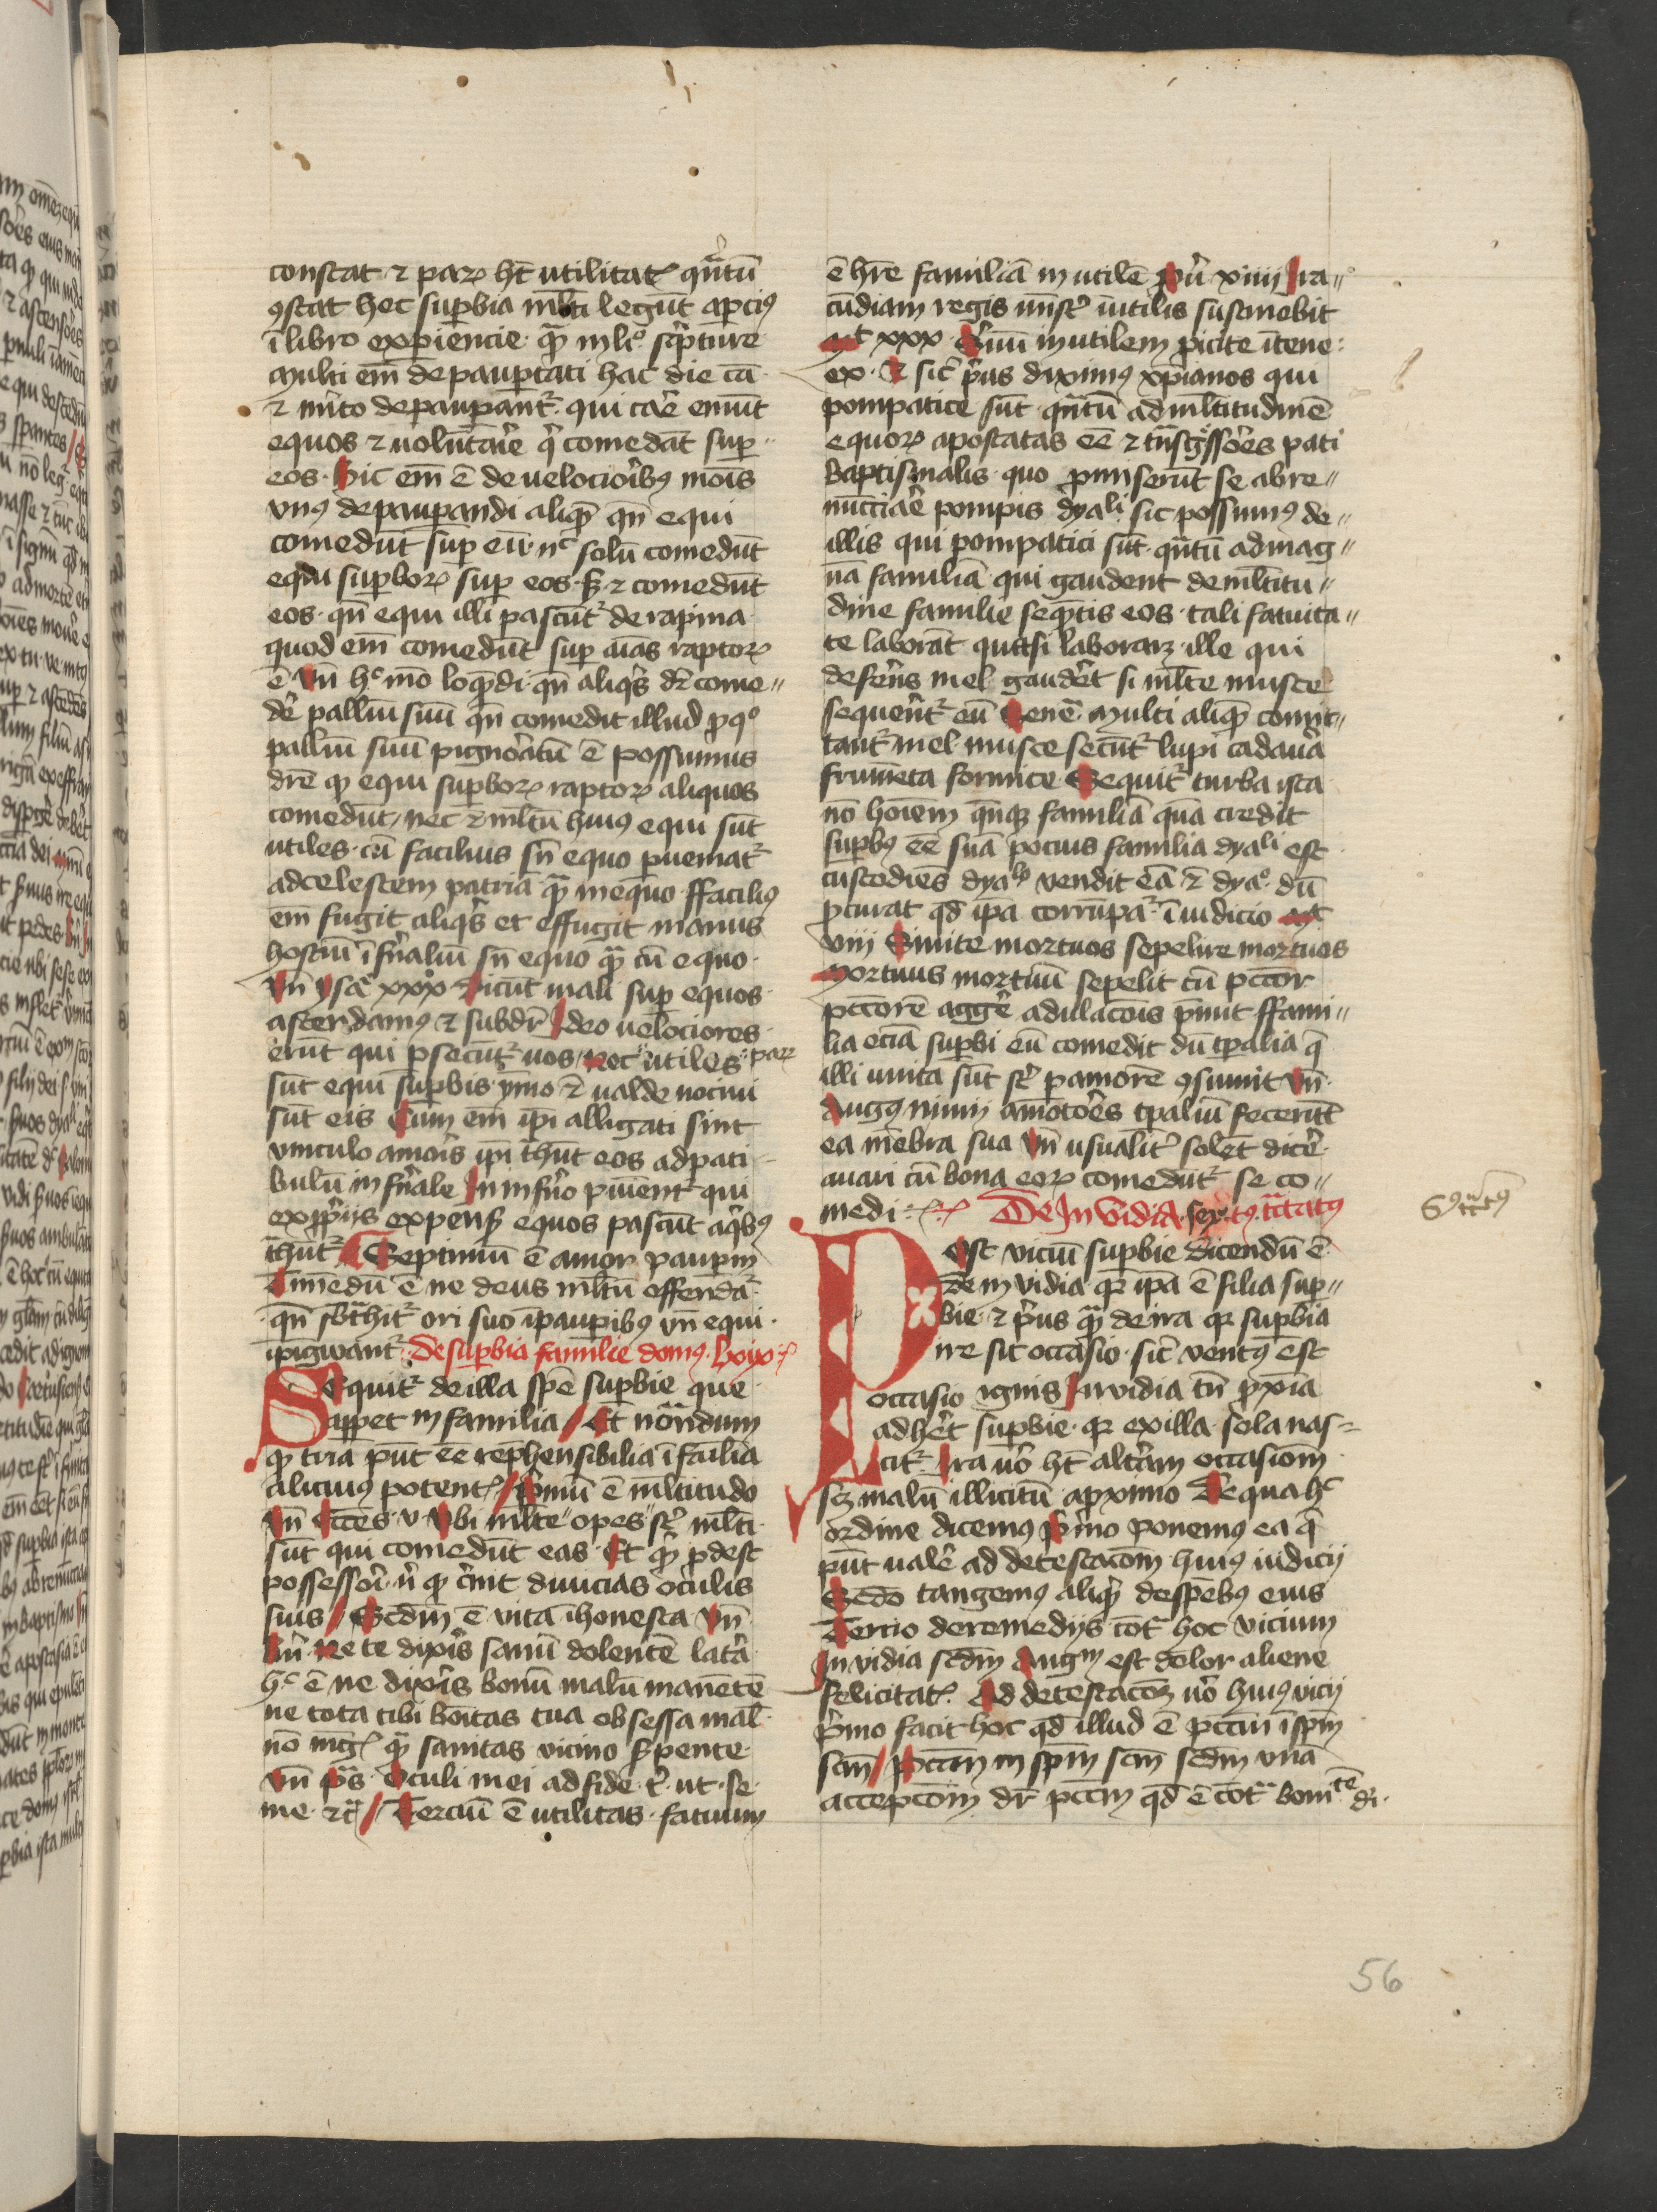 constat ⁊ paꝝ hꝫ̄t utilitatꝭ qꝛ̄tū
ꝯstat hec suꝑbia ml̄ti legūt aꝑciꝰ
ī libro exꝑiencie qͣꝫ in liᵒ sc̓pture
Multi em̄ depauꝑati hac die cā
⁊ m̓ito depauꝑant̉ qui car̄e emūt
equos ⁊ uolūtar̄ie q̄ comedāt suꝑ〃
eos. Hic em̄ ē de uelociorib̓ꝰ mōis
vnꝰ depauꝑandi aliqꝫ̄ qn̄ equi
comedūt suꝑ eū nᶜ solū comedūt
equi suꝑboꝝ suꝑ eos sꝫ ⁊ comedūt
eos. qn̄ equi illi pascūt̉ de rapina
quod em̄ comedūt suꝑ aīas raptoꝝ
ē Vn̄ hᶜ mō loqͣ̄di. qn̄ aliq̓s dr̄ come〃
de̓ palliū suū qn̄ comedit illud ꝓ qͦ
palliū suū pignor̓atū ē possumus
dic̄e ꝙ equi suꝑboꝝ raptoꝝ aliquos
comedūt, nec ⁊ ml̄tū huiꝰ equi sūt
utiles. cū facilius sn̄ equo ꝑueniat̉
ad celestem patriā qͣꝫ in equo ffaciliꝰ
em̄ fugit aliq̓s et effugit manus
hostiū īfr̄naliū sn̄ equo qͣꝫ cū equo.
Vn̄ ysa̓ xxxᵒ Dicūt mali suꝑ equos
ascendamꝰ ⁊ subdr̄ Ideo uelociores
erūt qui ꝑsecūt̉ uos, Nec utiles paꝝ
sūt equi suꝑbis ymo ⁊ ualde nociui
sūt eis Cum em̄ ip̄i alligati sint
vinculo amoris ip̄i tͣhūt eos ad pati
bulū infr̄nale In infr̄no pūient̉ qui
ex ꝓp̓ijs expensꝭ equos pascūt a qͥbꝰ
tͣhūt̉ Septimū ē amor pauꝑm
Timēdū ē ne deus ml̄tū offenda̓t
qn̄ sb̄tͣhit̉ ori suo ī pauꝑibus vn̄ equi
īpīgwant̉. De suꝑbia familie domꝰ. lxixᵒ
Sequit̉ de illa spē suꝑbie que
appet in familia / Et notā̄dum
ꝙ tria pn̄t ēē rep̄hensibilia ī failīa
alicuius potentꝭ / Primū ē ml̄titudo
Vn̄ Ecces. v Vbi ml̄te opes sꝭ ml̄ti
sūt qui comedūt eas. Et qͥd ꝓdest
possessori nͥ ꝙ cernit diuicias oculis
suis / Secdm̄ ē vita ihonesta Vn̄
Ne te dixis sanū dolentē lat̓a
hᶜ ē ne dixis bonū malū manētē
ne tota tibi boītas tua obsessa mal
nō mgꝭ qͣꝫ sanitas vicino sꝑpente
Vn̄ pͣs. Oculi mei ad fide. tꝰ. ut. se.
me ⁊c̄ // Terciū ē utilitas. fatuum
ē hr̄e familiā inutilē Prou̓ xiiij Ira〃
cūdiam regis mīst̓ iūtilis sustinebit
Mᵗ xxx Seruū inutilem ꝓicite ī tene:
ex. Et sic̓ pri̓us diximꝰ xp̄ianos qui
pompatice sūt qꝛ̄tū ad ml̄titudinē
equoꝝ apostatas ēē ⁊ tͣnsg̓ssor̄es pati
baptismalis quo ꝓmiserūt se abre〃
nūcciar̄e pompis dyaˡⁱ sic possumꝰ de〃
illis qui pompatici sūt qꝛ̄tū ad mag〃
nā familiā qui gaudent de ml̄titu〃
dine familie seqͣ̄tis eos. tali fatuita〃
te laborāt quasi laboraꝫ ille qui
defer̄ns mel gaudēt si ml̄te musce
sequer̄nt̉ eū Multi aliqꝫ̄ comit〃
tant̉ mel musce secūt̉ lupi cadaue̓
frumēta formice Sequit̉ turba ista
nō hoīem familiā quā credit
suꝑbꝰ ēē suā pocius familia dyaˡⁱ est
custodiēs dyaᵇᵒ vendit eā ⁊ dyaᵒ. dū
ꝓcurat qd̄ ip̄a corrūpa̓t ī iudicio Mᵗ
viij Sinite mortuos sepelire mortuos
Mortuus mortuū sepelit cū pctōr
pctōrē agge̓ adulacōis p̄mit ffami〃
lia eciā suꝑbi eū comedit dū tꝑalia q̄
illi unita sūt sꝭ ꝑ amorē ꝯsumit Vn̄
Augꝰ nimij amōtor̄es tꝑaliū fecerūt
ea mēbra sua Vn̄ usualit̓ solēt dic̓e
auari cū bona eoꝝ comedūt̉ se co〃
medi. De Invidia. sex.tꝰ. tͣctatꝰ
Post viciū suꝑbie dicendū ē
de invidia qꝛ ip̄a ē filia suꝑ〃
bie ⁊ pri̓us qͣꝫ de ira qꝛ suꝑbia
ire sit occasio. sic̓ ventꝰ est
occasio ignis Invidia tn̄ ꝓxīa
adhe̓t suꝑbie. qꝛ ex illa sola nas=
cit̉ Ira uō hꝫ̄t alt̓am occasionē
sꝫ malū illicitū a ꝓximo De qua hᶜ
ordine dicemꝰ p̓mo ponemꝰ ea q̄
pn̄t uale̓ ad detestacōm huiꝰ iudicij
Secdō tangemꝰ aliqͣ de sp̄ebꝰ eius
Tercio de remedijs cōt̓ hoc vicium
Invidia scdm̄ Augᵐ est dolor aliene
felicitatꝭ. Ad detestacōꝫ uō huiꝰ vicij
p̓mo facit hoc qd̄ illud ē pctm̄ ī sp̄m
scm̄ / Pctm̄ in sp̄m scm̄ scdm̄ vnā
accepcōm dr̄ pctm̄ qd̄ ē cōtͣ boniᵗᵉ di.
56